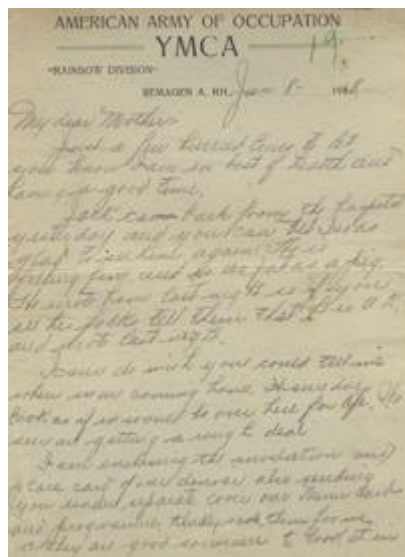 AMERICAN ARMY OF OCCUPATION
YMCA
19.
"RAINBOW DIVISION"
REMAGEN A. RH., Jan 8- 1918
My dear Mother-
Just a few hurried lines to let
you know I am in best of health and
having a good time.
Jack came back from the hospital
yesterday and you can bet I was
glad to see him again. He is
looking fine and is as fat as a pig.
He wrote home last night so if you
see his folks tell them that he is O.K.
and wrote last night.
I sure do wish you could tell me
when we are coming home. It sure does
look as if we would be over here for life. We
sure are getting a rough deal
I am enclosing the invitation and
place card of our dinner also sending
you under separate cover our
and programme. Kindly save them for me
as they are good souvenirs to look at